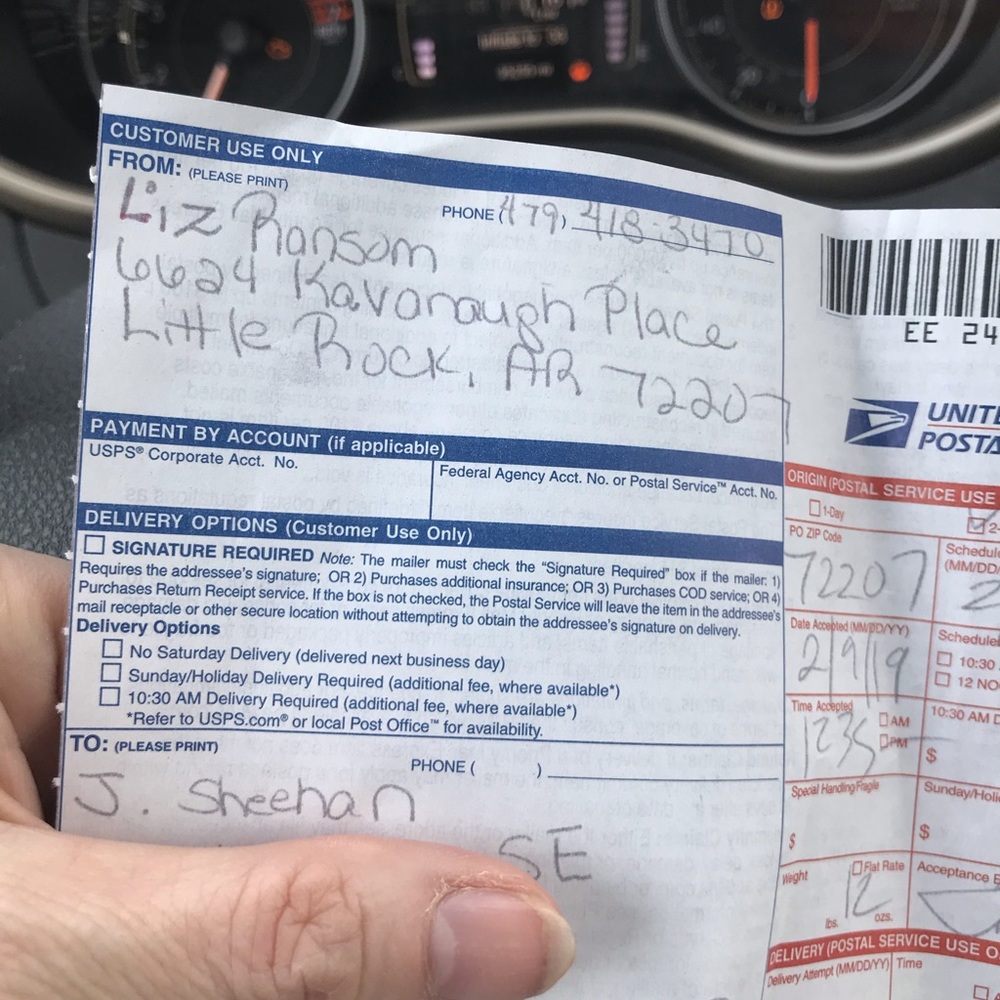 CUSTOMER USE ONLY
FROM: (PLEASE PRINT)
PHONE (479) 418-3470
Liz Ransom
6624 Kavanaugh Place
Little Rock, AR 72207
EE 24
PAYMENT BY ACCOUNT (if applicable)
USPS® Corporate Acct. No.
Federal Agency Acct. No. or Postal Service™ Acct. No.
DELIVERY OPTIONS (Customer Use Only)
SIGNATURE REQUIRED Note: The mailer must check the "Signature Required" box if the mailer: 1)
Requires the addressee's signature; OR 2) Purchases additional insurance; OR 3) Purchases COD service; OR 4)
Purchases Return Receipt service. If the box is not checked, the Postal Service will leave the item in the addressee's
mail receptacle or other secure location without attempting to obtain the addressee's signature on delivery.
Delivery Options
No Saturday Delivery (delivered next business day)
Sunday/Holiday Delivery Required (additional fee, where available*)
10:30 AM Delivery Required (additional fee, where available*)
*Refer to USPS.com® or local Post Office™ for availability.
TO: (PLEASE PRINT)
PHONE ( )
J. Sheehan
SE
UNIT
POSTA
ORIGIN (POSTAL SERVICE USE
1-Day
2
PO ZIP Code
72207
Schedule
(MM/DD/
2
Date Accepted (MM/DD/YY)
2/9/19
Scheduled
10:30
12 NO
Time Accepted
1235
AM
PM
10:30 AM D
$
Special Handling/Fragile
$
Sunday/Holi
$
Weight
Flat Rate
12
lbs. ozs.
Acceptance E
DELIVERY (POSTAL SERVICE USE O
Delivery Attempt (MM/DD/YY) Time